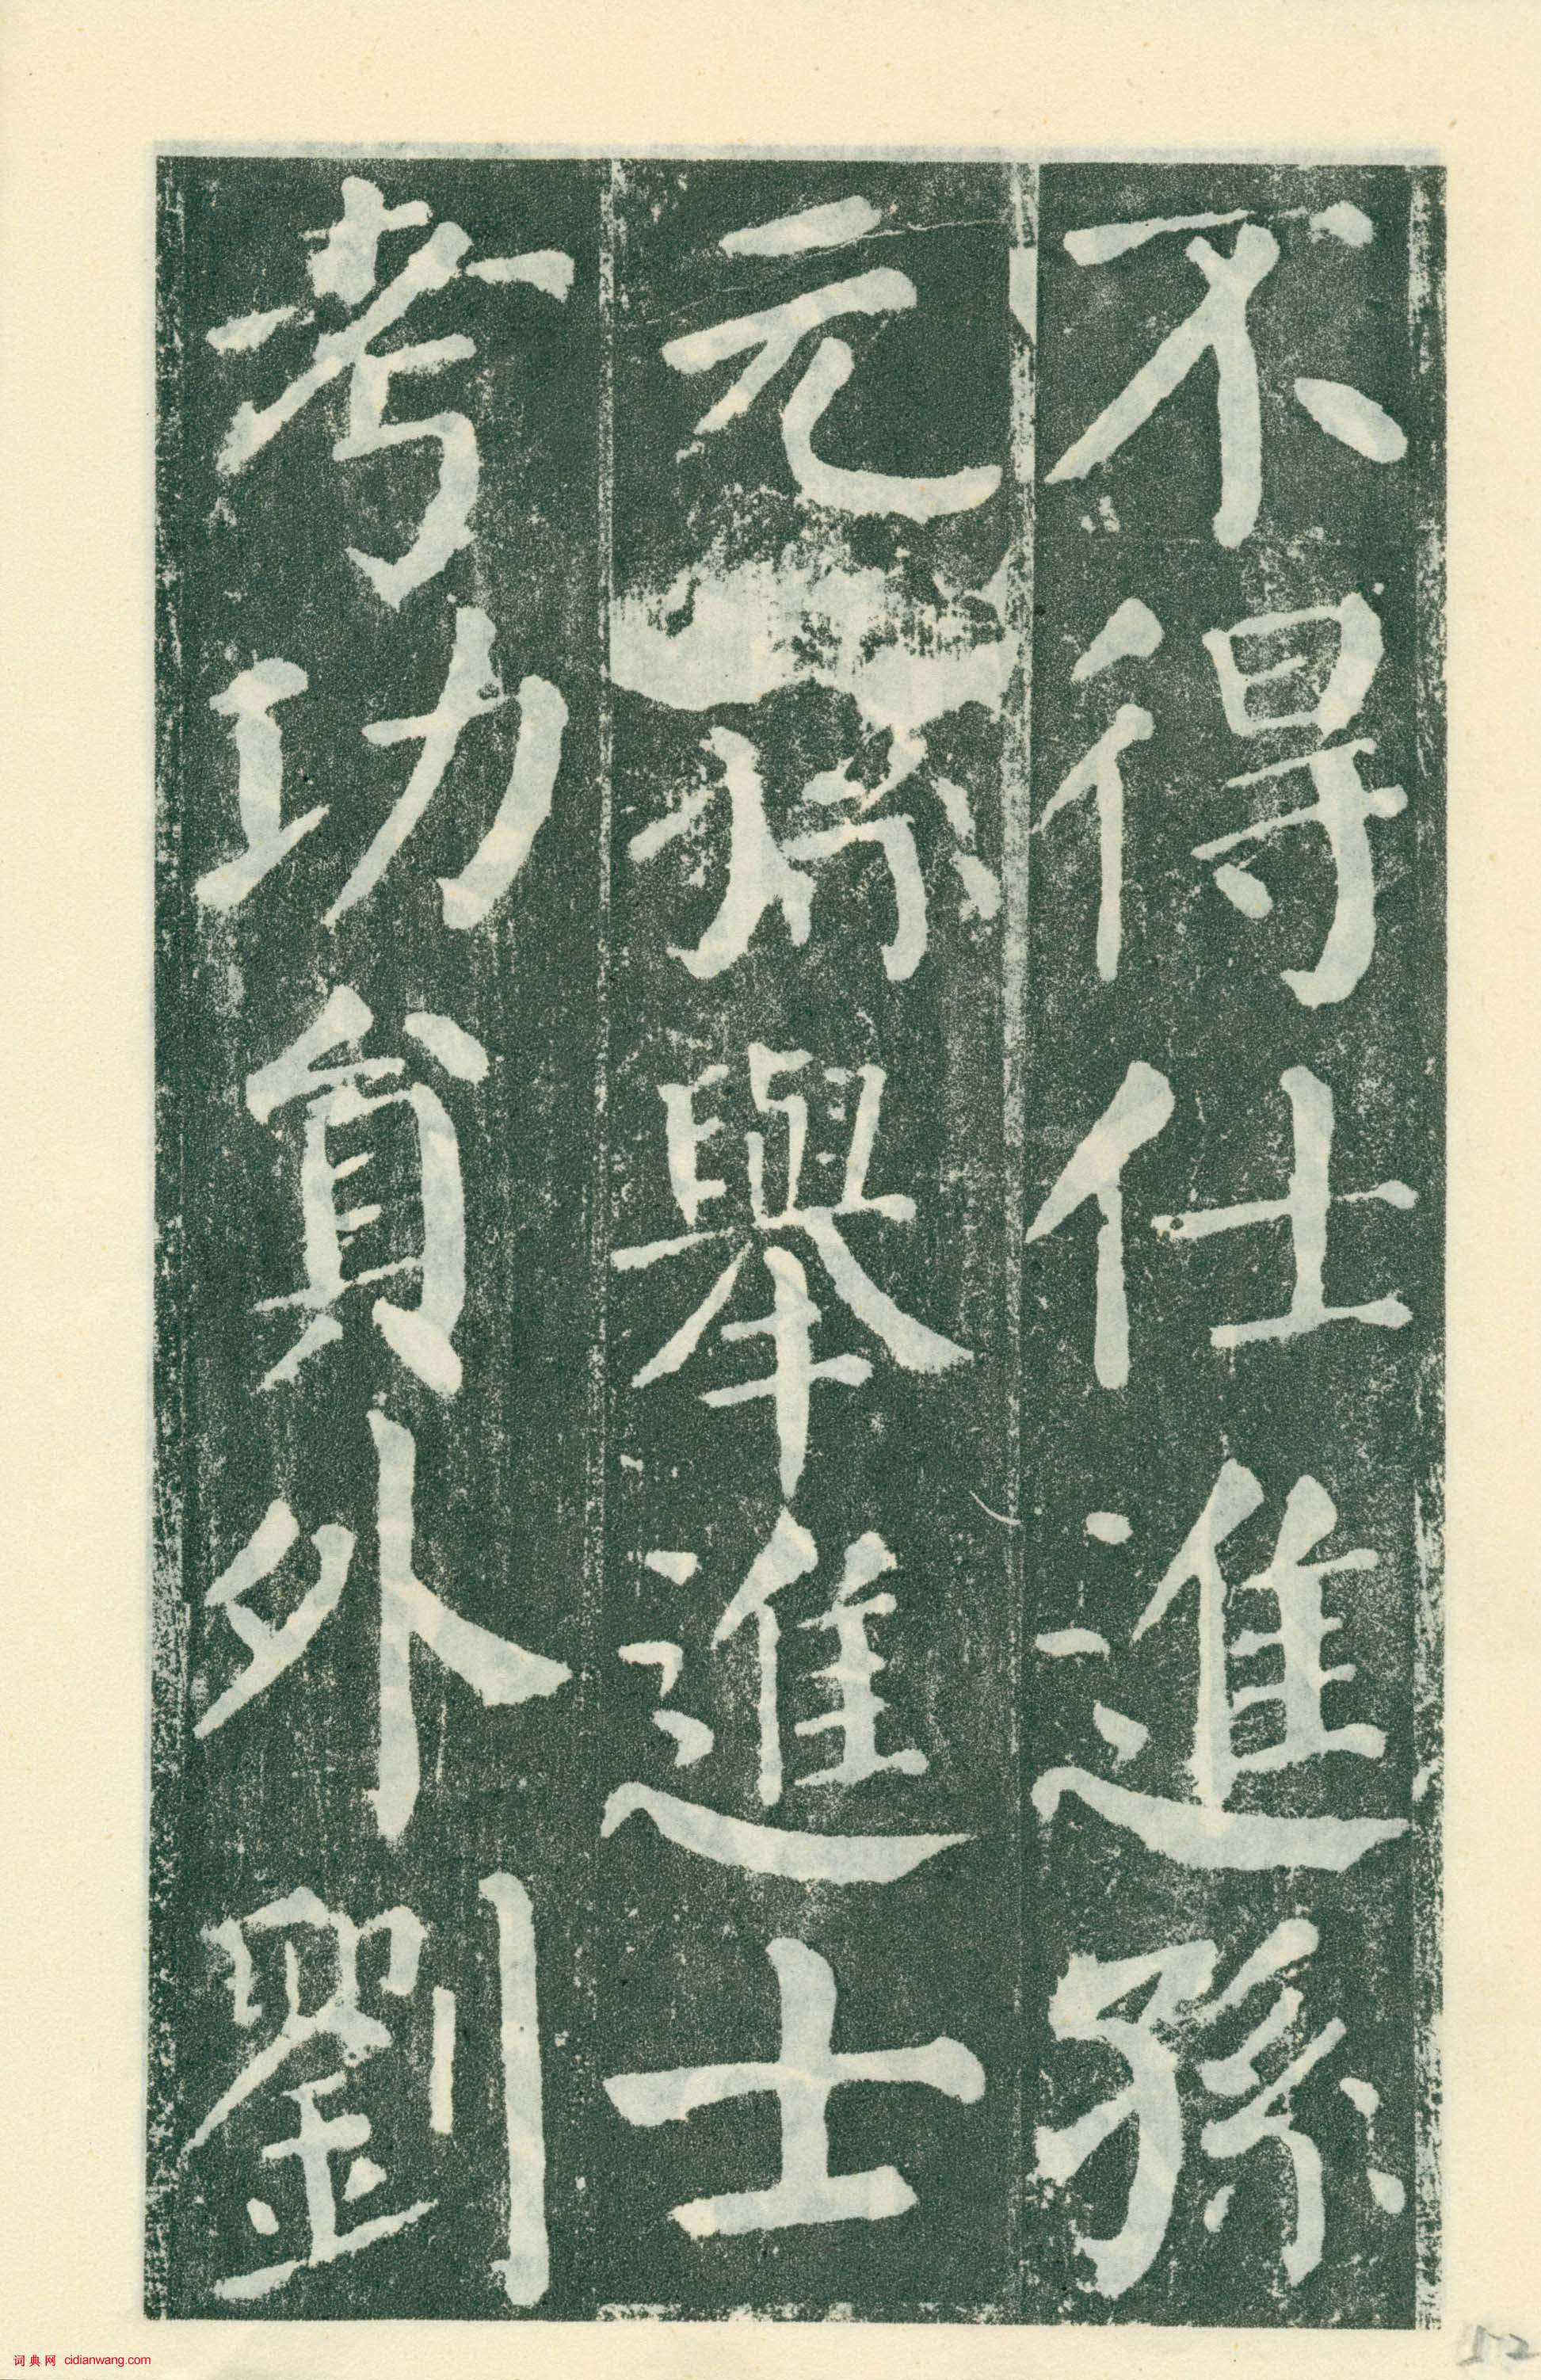 不得仕進孫
元孫舉進士
考功貟外劉
词典网 cidianwang.com
52